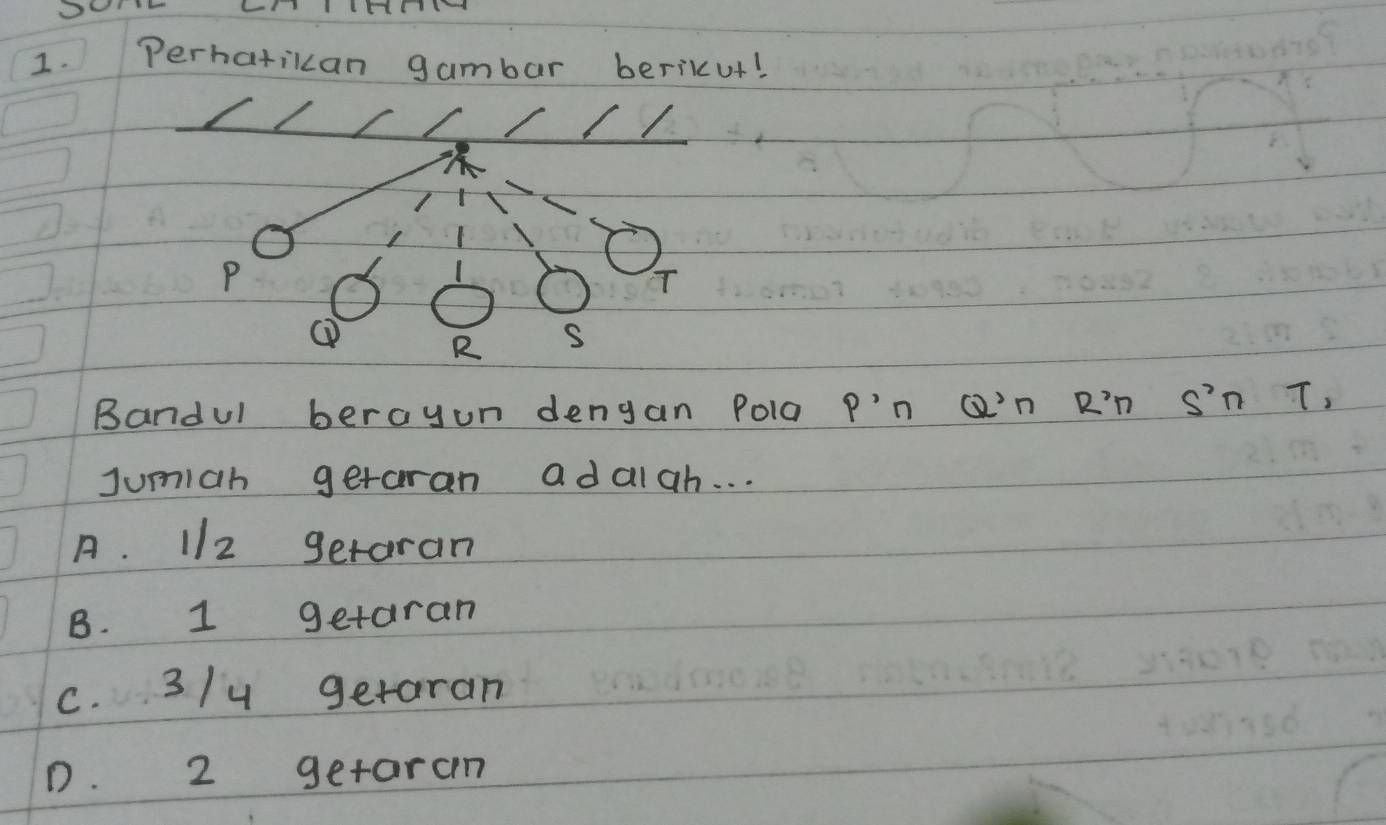 SOAL LATIHAN
1. Perhatikan gambar berikut!
P
Q
R
S
T
Bandul berayun dengan Pola P'n Q'n R'n S'n T,
Jumlah getaran adalah...
A. 1/2 getaran
B. 1 getaran
C. 3/4 getaran
D. 2 getaran